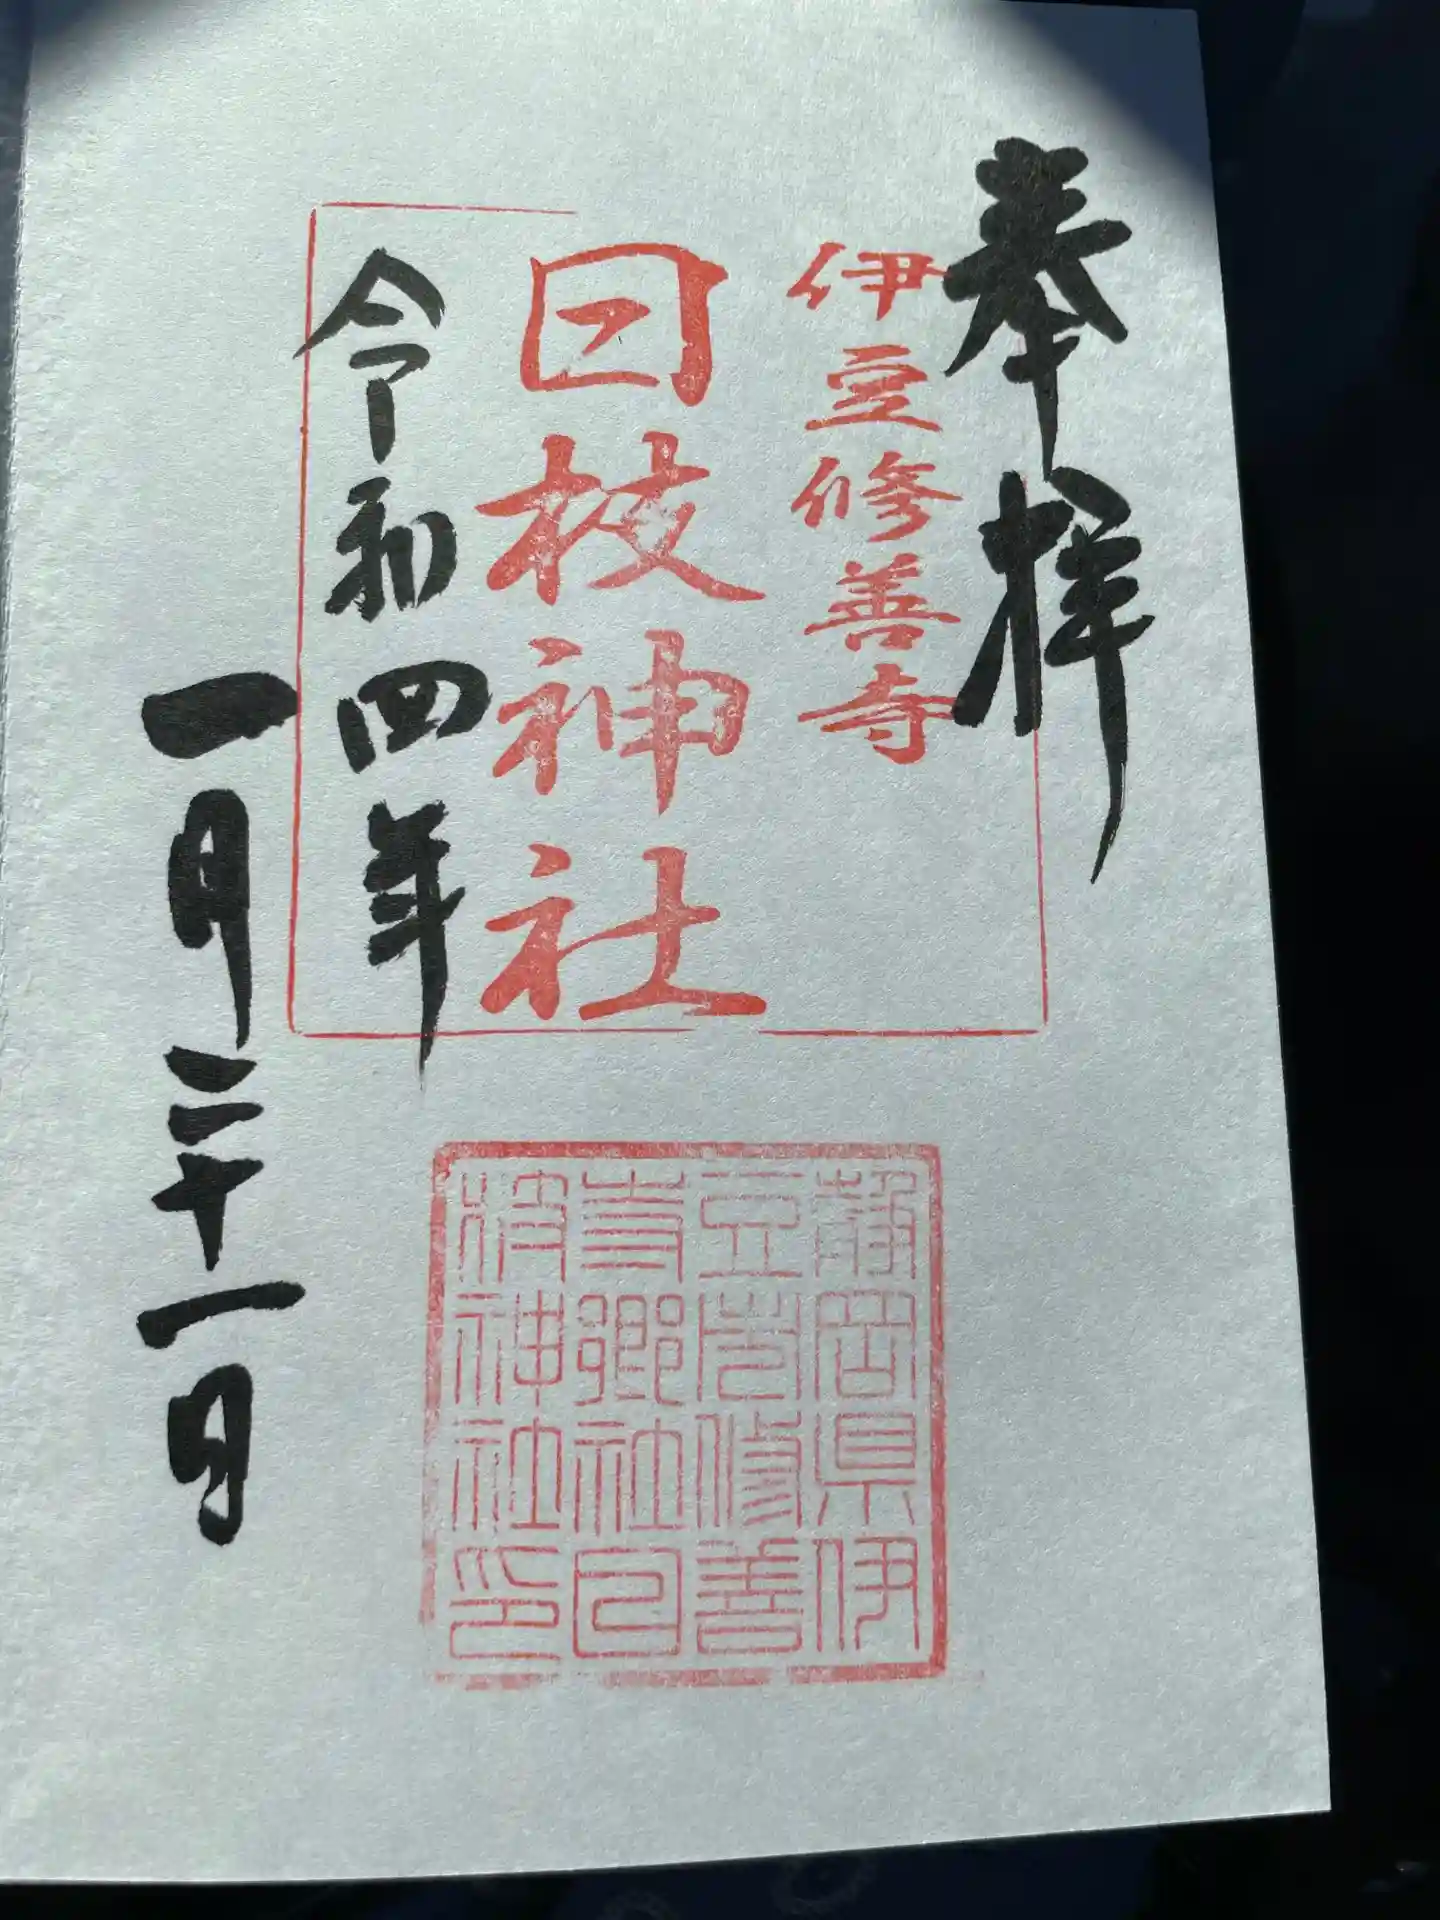 奉拝
伊豆修善寺
日枝神社
令和四年
一月二十一日
静岡県伊
豆市修善
寺郷社日
枝神社印